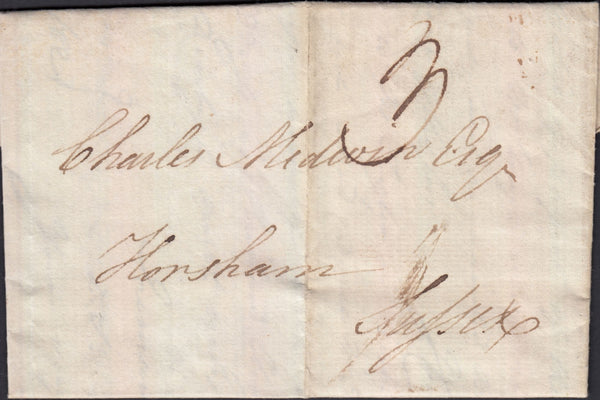 3
Charles Medwin Esq
Horsham
Sussex